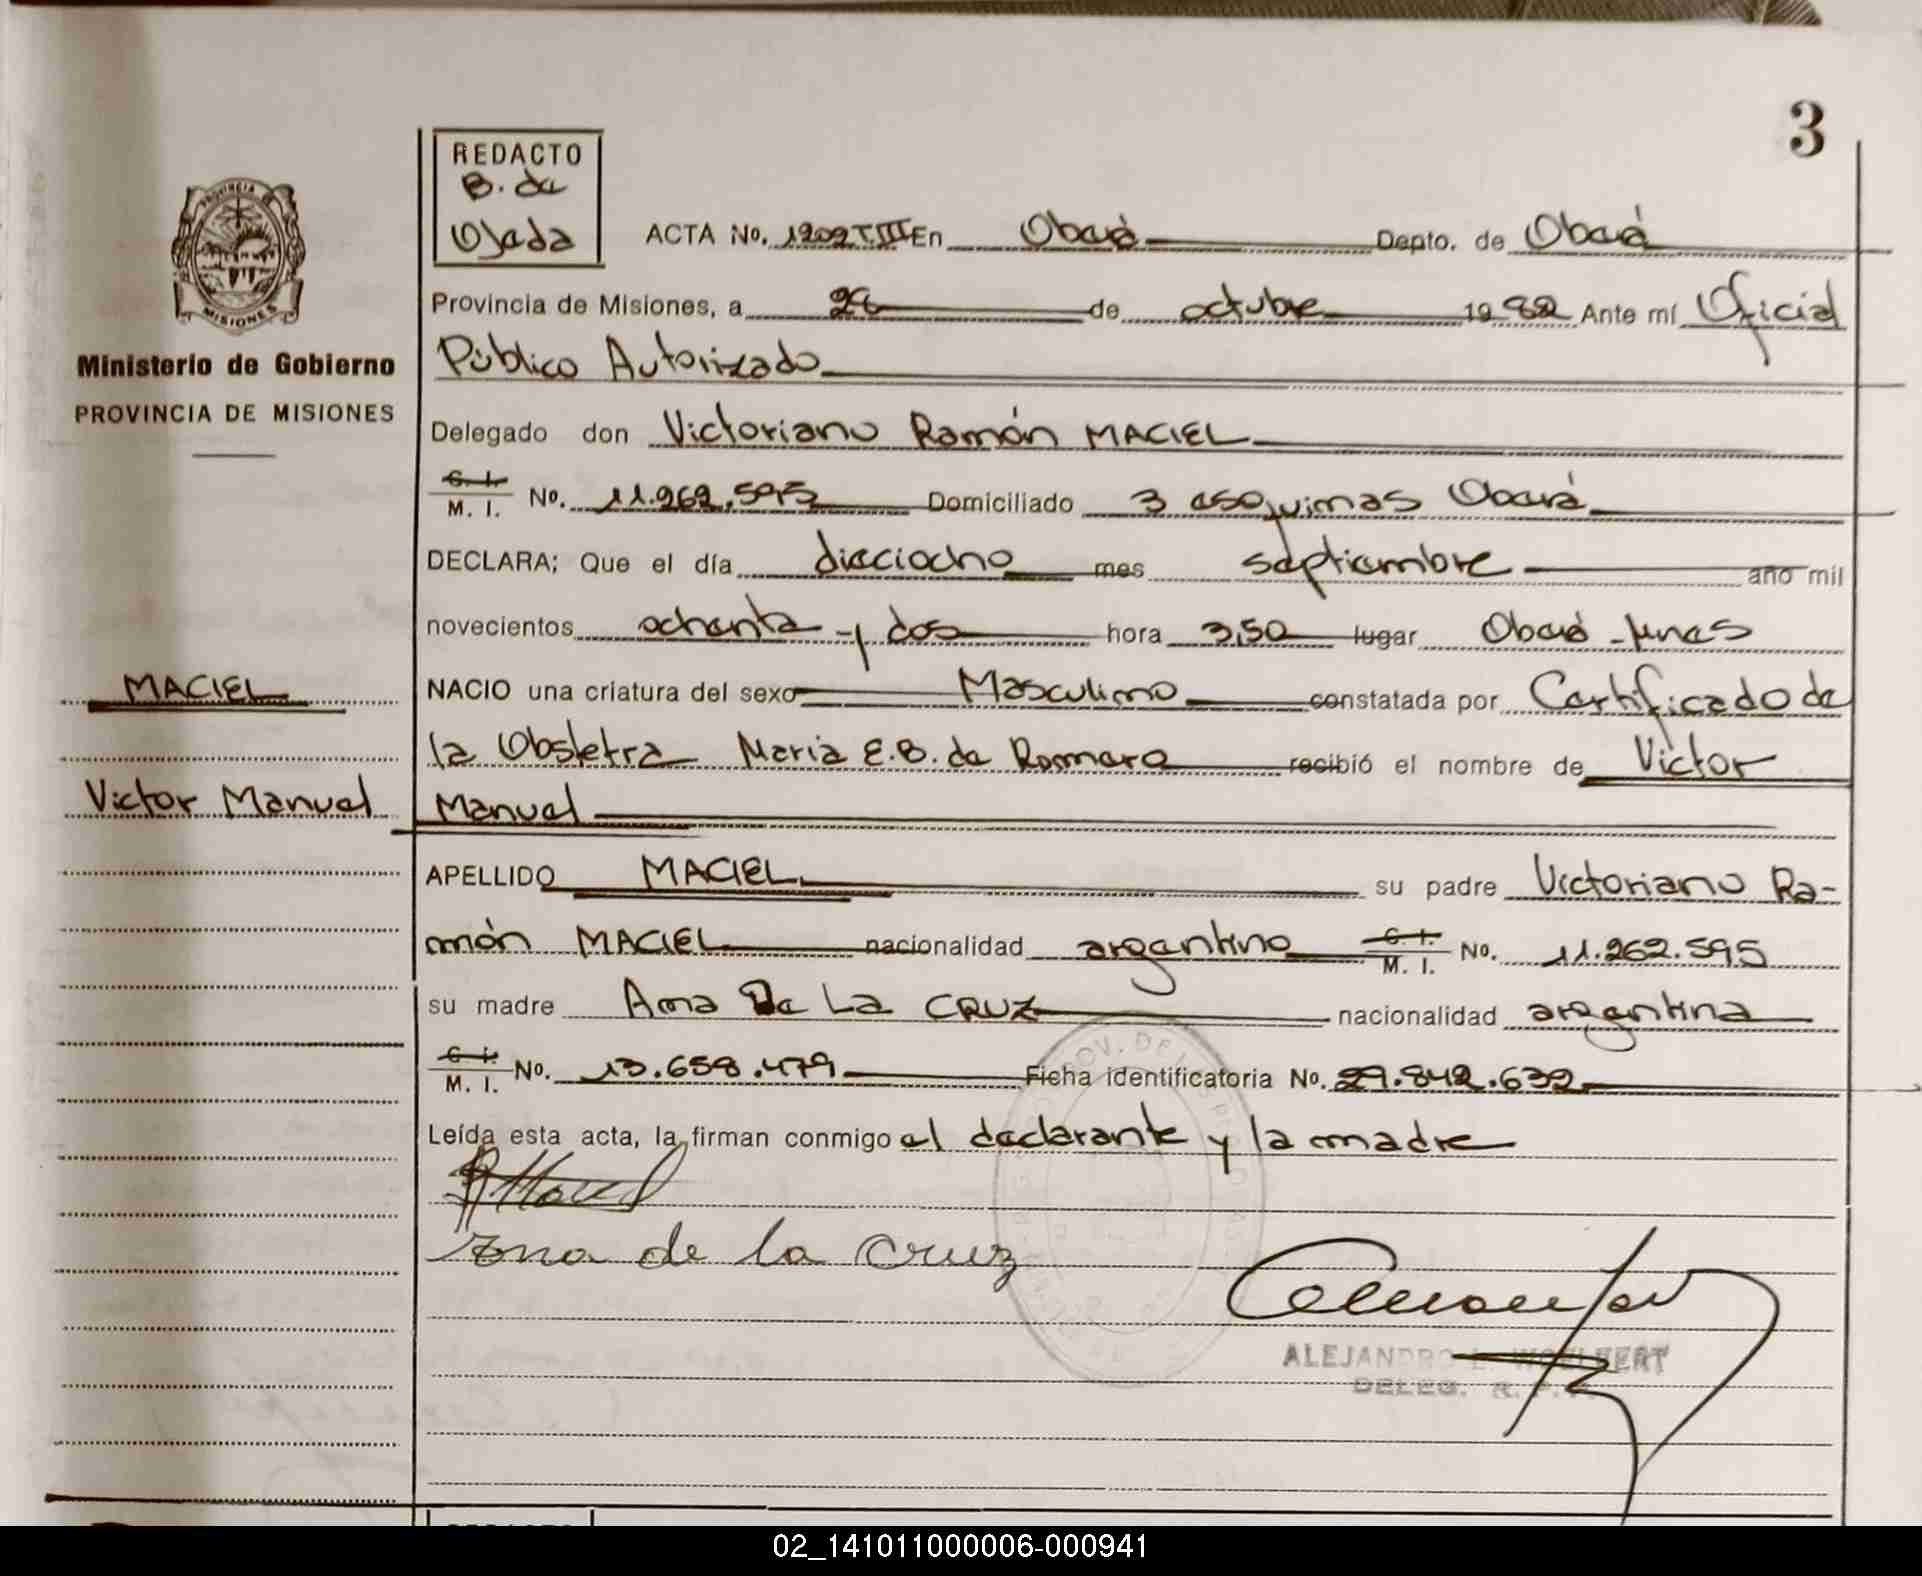 3
REDACTO
B. de
Ojeda
ACTA No. 1202 T.III En Oberá Depto. de Oberá
Provincia de Misiones, a de octubre 1982 Ante mí Oficial
Público Autorizado
Delegado don Victoriano Ramón MACIEL
C. I.
M. I. No. 11.262.595 Domiciliado 3 esquinas Oberá
DECLARA; Que el día dieciocho mes septiembre año mil
novecientos ochenta y dos hora 3,50 lugar Oberá -Mnes
NACIO una criatura del sexo Masculino constatada por Certificado de
la Obstetra Maria E.B. de Romero recibió el nombre de Victor
Manuel
APELLIDO MACIEL su padre Victoriano Ra-
món MACIEL nacionalidad argentino C. I.
M. I. No. 11.262.595
su madre Ana De La CRUZ nacionalidad argentina
C. I.
M. I. No. 13.658.479 Ficha identificatoria No. 29.842.632
Leída esta acta, la firman conmigo el declarante y la madre
Ana de la Cruz
ALEJANDRO
DELEG. R. P.
PROVINCIA DE
MISIONES
Ministerio de Gobierno
PROVINCIA DE MISIONES
MACIEL
Victor Manuel
02_141011000006-000941